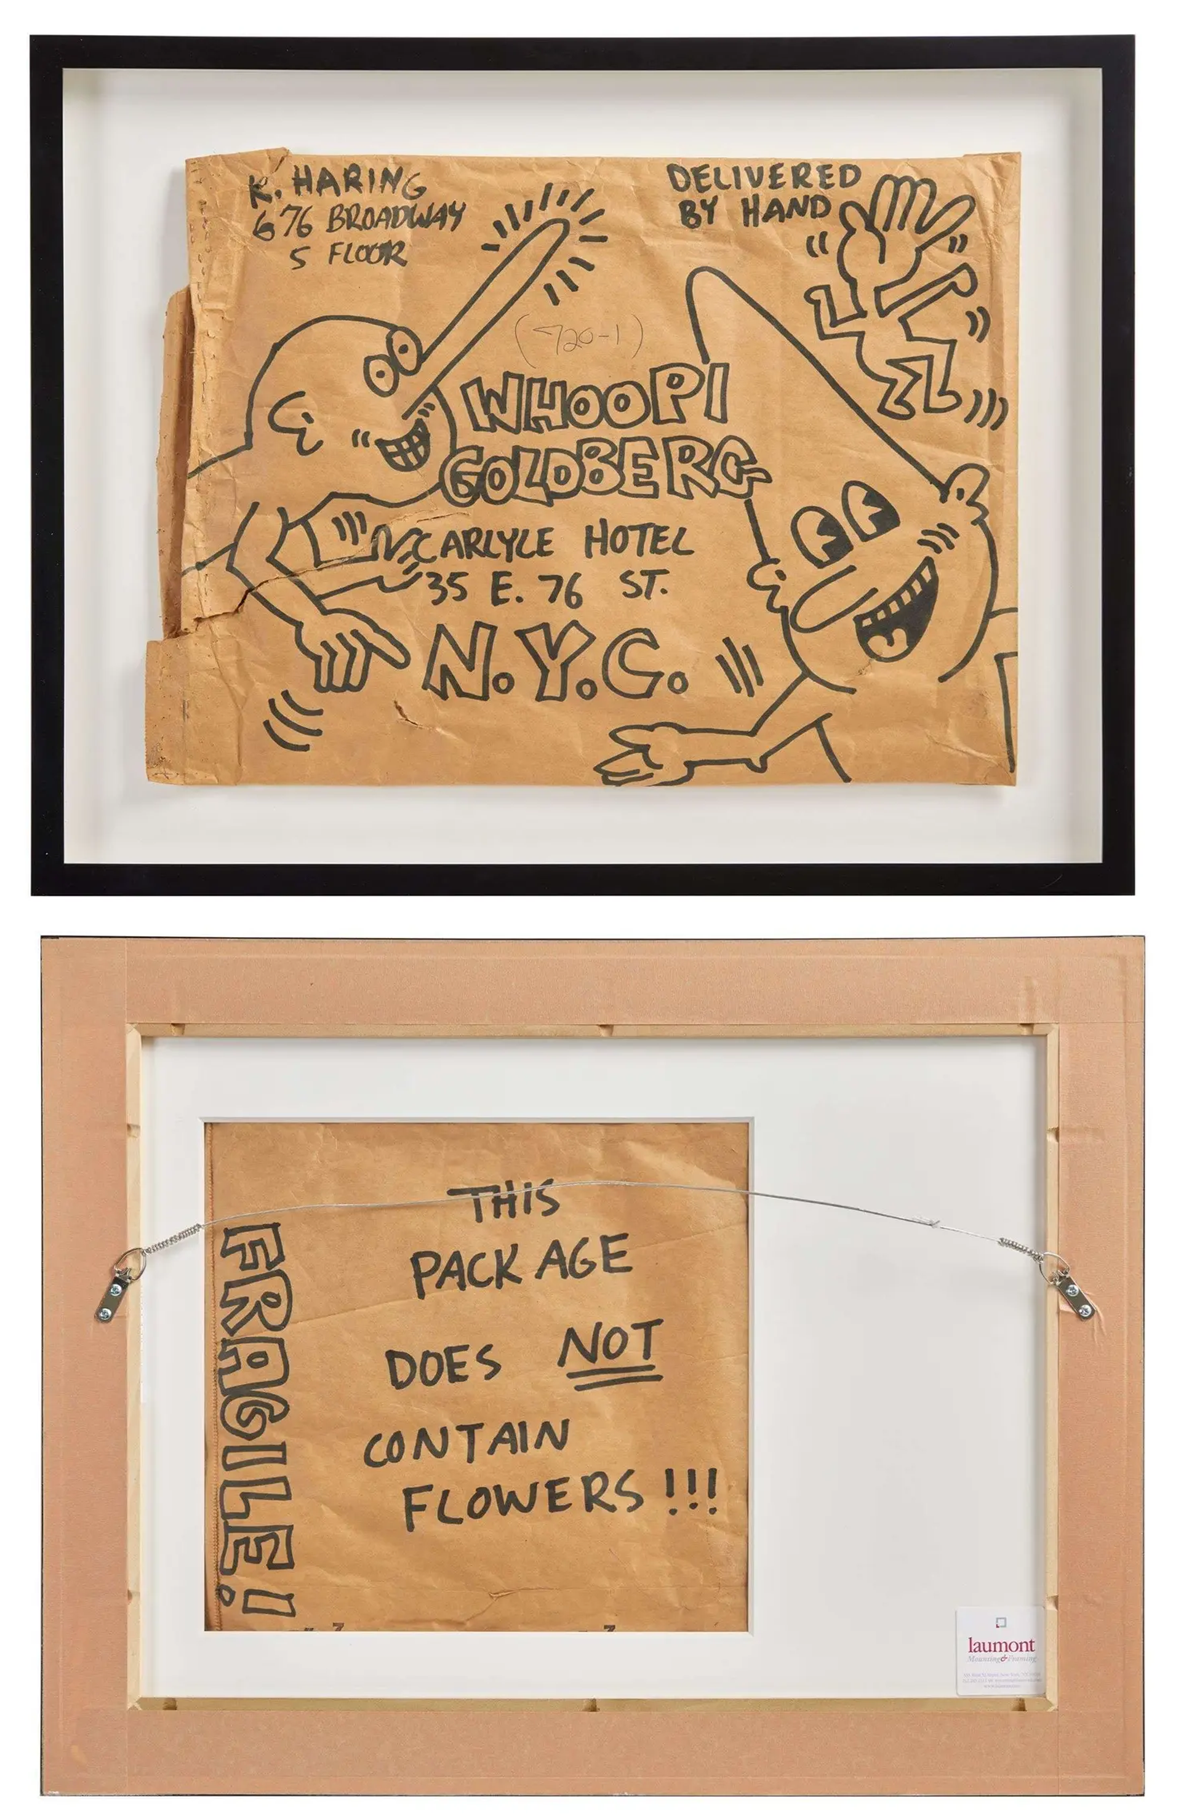 K. HARING
676 BROADWAY
5 FLOOR
DELIVERED
BY HAND
(720-1)
WHOOPI
GOLDBERG
CARLYLE HOTEL
35 E. 76 ST.
N.Y.C.
FRAGILE!
THIS
PACKAGE
DOES NOT
CONTAIN
FLOWERS !!!
laumont
Mounting & Framing